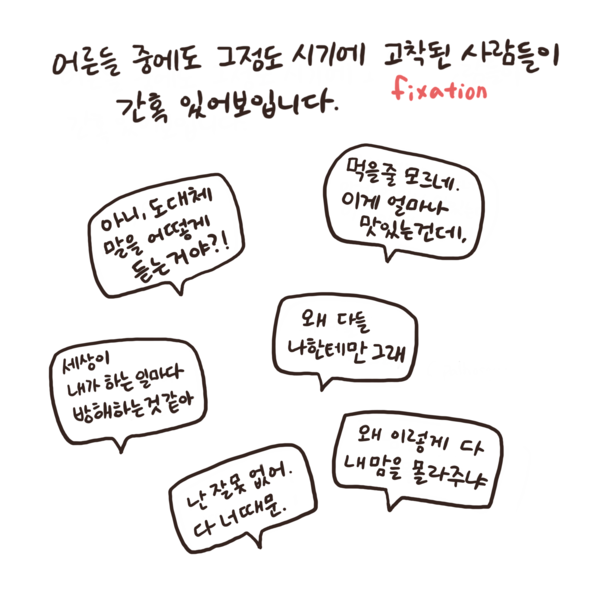 어른들 중에도 그정도 시기에 고착된 사람들이
fixation
간혹 있어보입니다.
아니, 도대체
말을 어떻게
듣는거야?!
먹을줄 모르네.
이게 얼마나
맛있는건데,
왜 다들
나한테만 그래
세상이
내가 하는 일마다
방해하는것 같아
왜 이렇게 다
내맘을 몰라주냐
난 잘못 없어.
다 너때문.